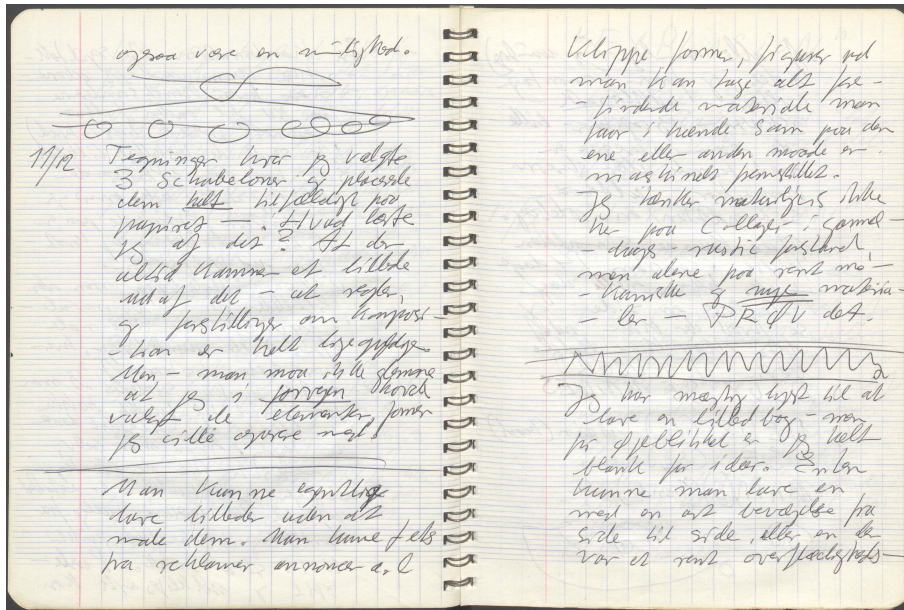 ogsaa være en mulighed.
11/12 Tegninger hvor jeg valgte
3 Schabeloner og placerede
dem helt tilfældigt paa
papiret — . Hvad lærte
jeg af det? At der
altid kommer et billede
ud af det – at regler,
og forstillinger om komposi-
-tion er helt ligegyldige.
Men – man maa ikke glemme
at jeg i forvejen havde
valgt de elementer, former
jeg ville operere med!
Man kunne egentlig
lave billeder uden at
male dem. Man kunne f eks
fra reklamer, annoncer o.l
klippe, former, figurer ud
man kan tage alt fore-
man
faar i hænde som paa den
ene eller anden maade er
maskinelt fremstillet.
Jeg tænker naturligvis ikke
her paa Collager i gammel-
-dags – rustic forstand
men alene paa rent me-
-kaniske og nye materia-
-ler — PRØV det.
Jeg har mægtig lyst til at
lave en billedbog – men
for øjeblikket er jeg helt
blank for ideer. Enten
kunne man lave en
med en art bevægelse fra
side til side, eller en der
var et rent overflødigheds-